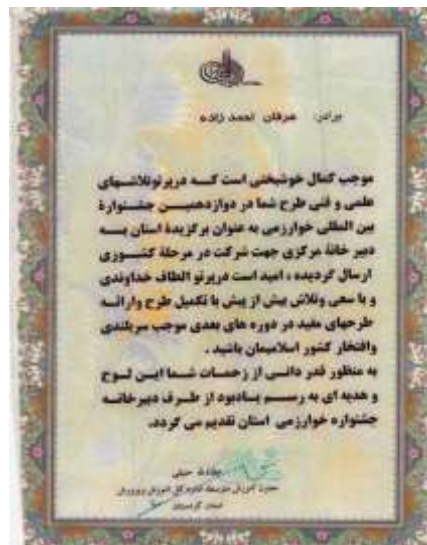 برادر: عرفان احمد زاده
موجب کمال خوشبختی است کـه درپرتوتلاشهای
علمی و فنی طرح شما در دوازدهمین جشنوارۀ
بین المللی خوارزمی به عنوان برگزیدۀ استان بـه
دبیر خانۀ مرکزی جهت شرکت در مرحلۀ کشوری
ارسال گردیده ، امید است درپرتو الطاف خداوندی
و با سعی وتلاش بیش از پیش با تکمیل طرح وارائـه
طرحهای مفید در دوره های بعدی موجب سربلندی
وافتخار کشور اسلامیمان باشید .
به منظور قدر دانی از زحمات شما این لوح
و هدیه ای به رسم یادبود از طرف دبیرخانه
جشنواره خوارزمی استان تقدیم می گردد.
معاون آموزش متوسطه اداره کل آموزش وپرورش
استان